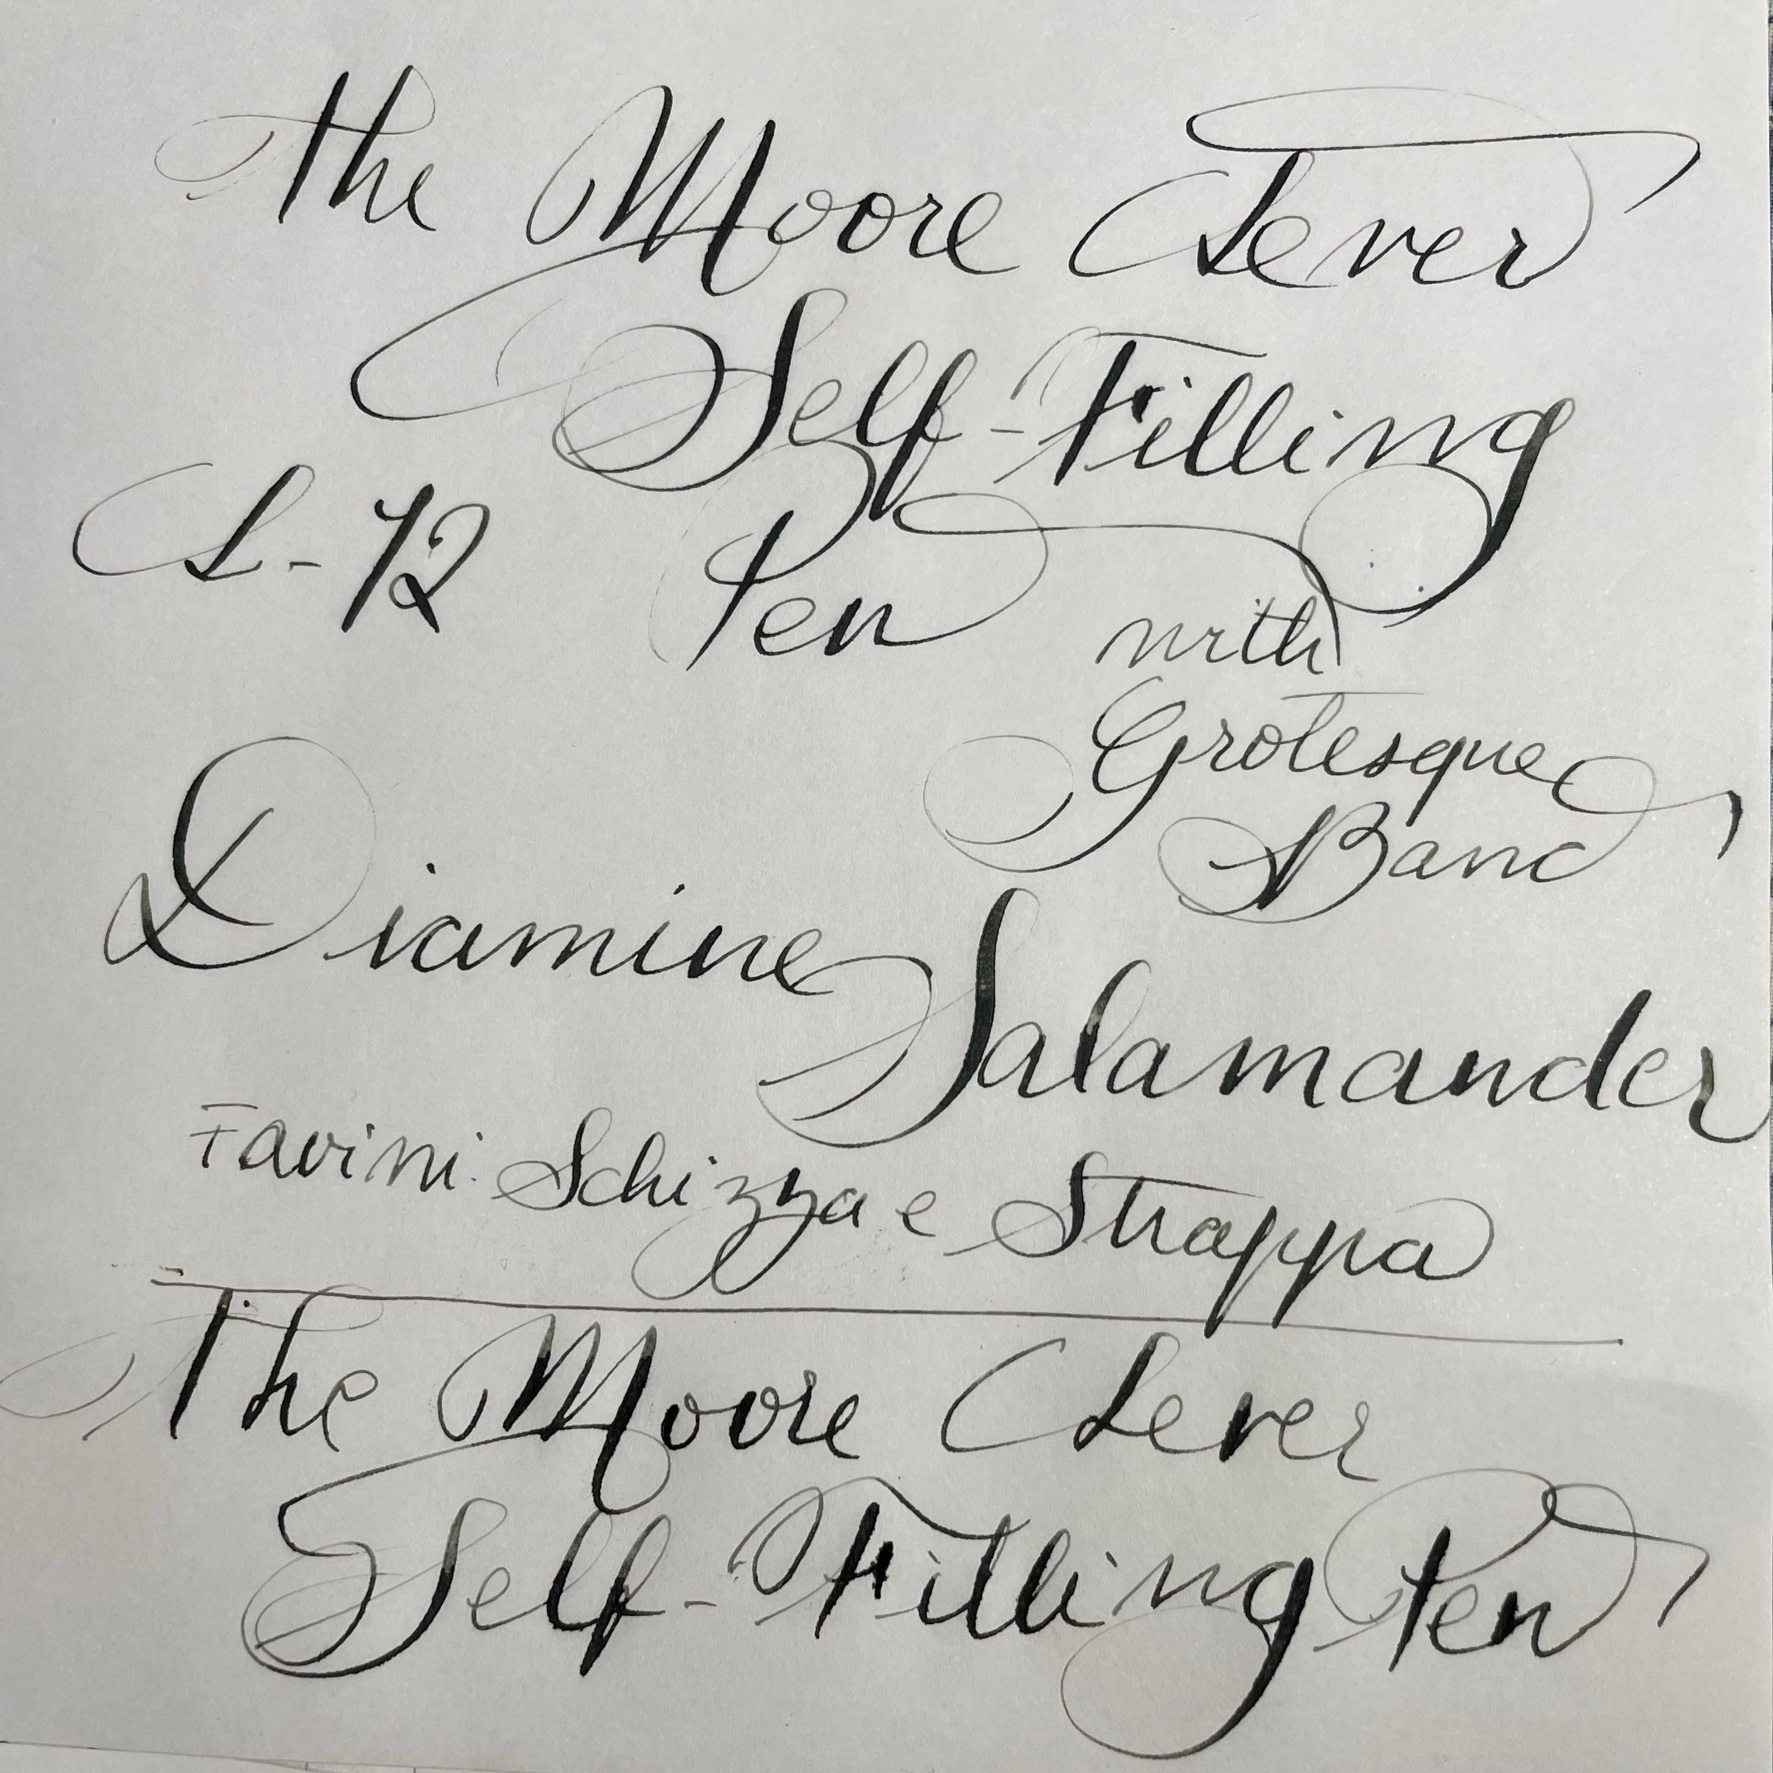 The Moore Lever
Self-Filling
L-72 Pen with
Grotesque
Band
Diamine
Salamander
Favini Schizza e Strappa
The Moore Lever
Self-Filling Pen